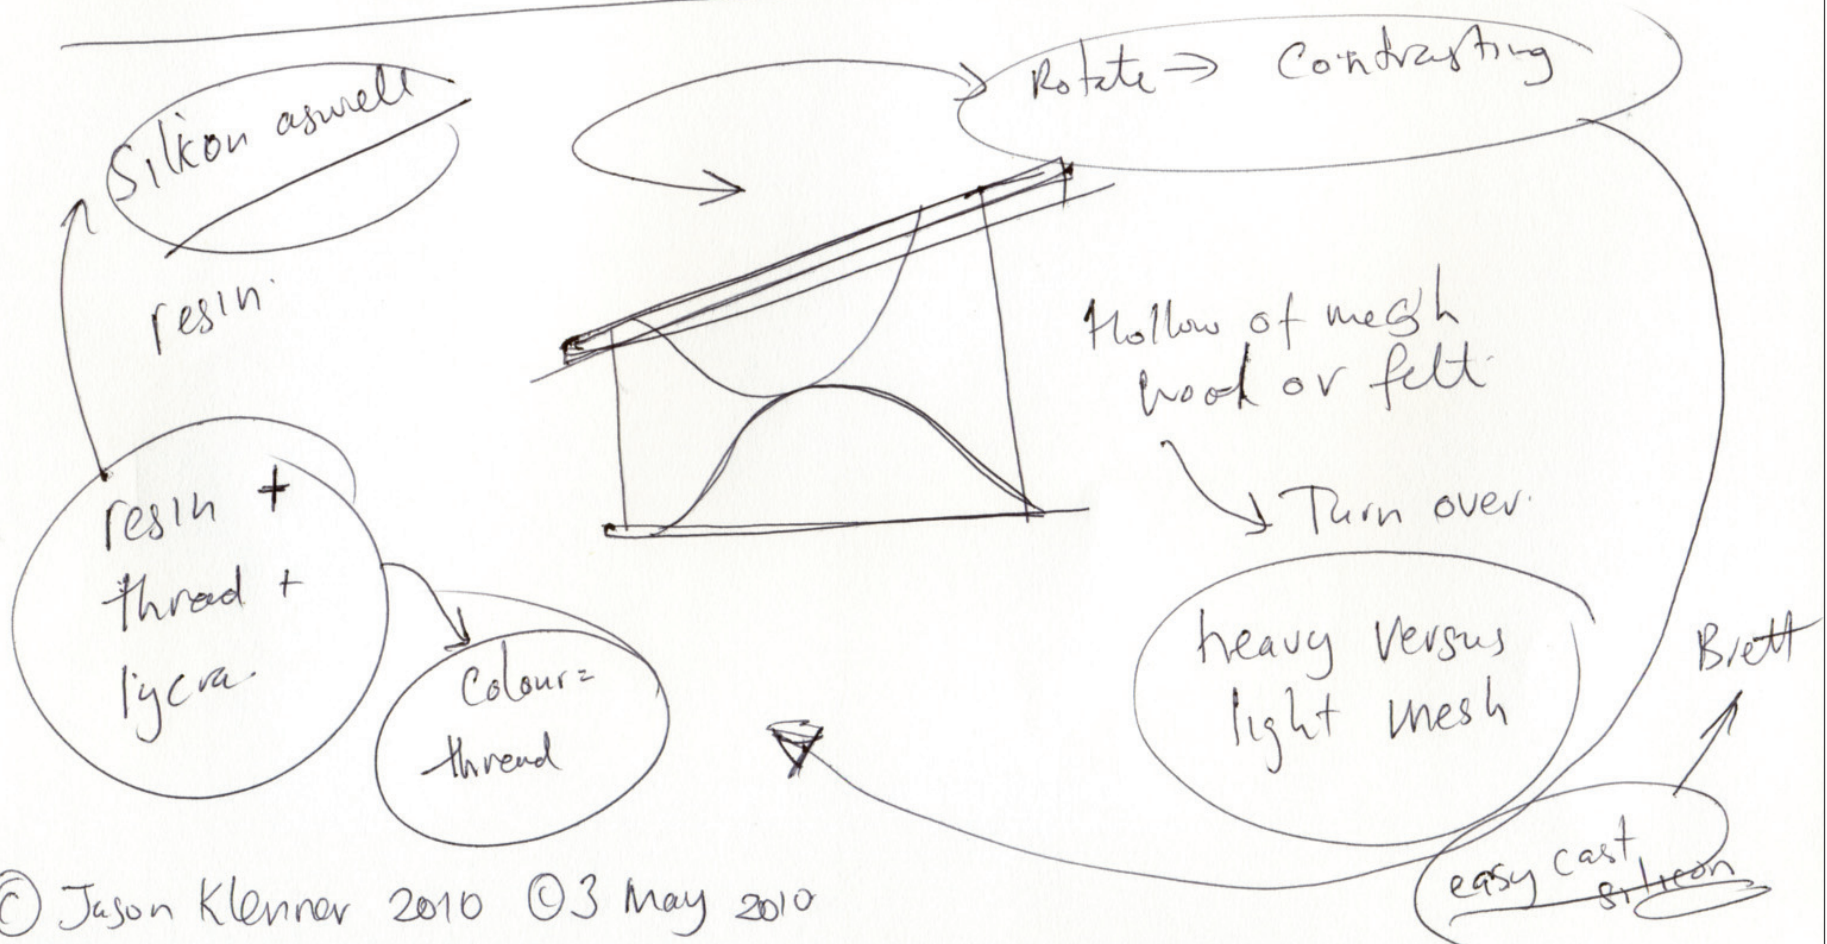 Silkon aswell
resin
Rotate → Contrasting
Hollow of mesh
wood or felt
Turn over
resin +
thread +
lycra
Colour =
thread
heavy versus
light mesh
Brett
easy cast
silicon
© Jason Klenner 2010 © 3 May 2010